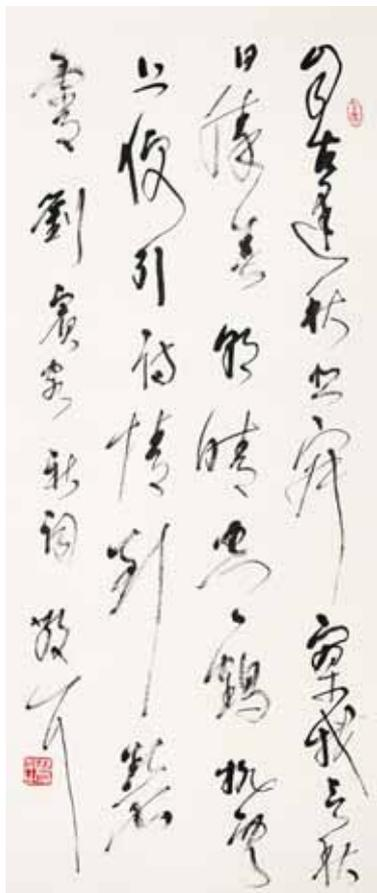 自古逢秋悲寂寥我言秋
日勝春朝晴空一鶴排雲
上便引詩情到碧
霄劉賓客秋詞